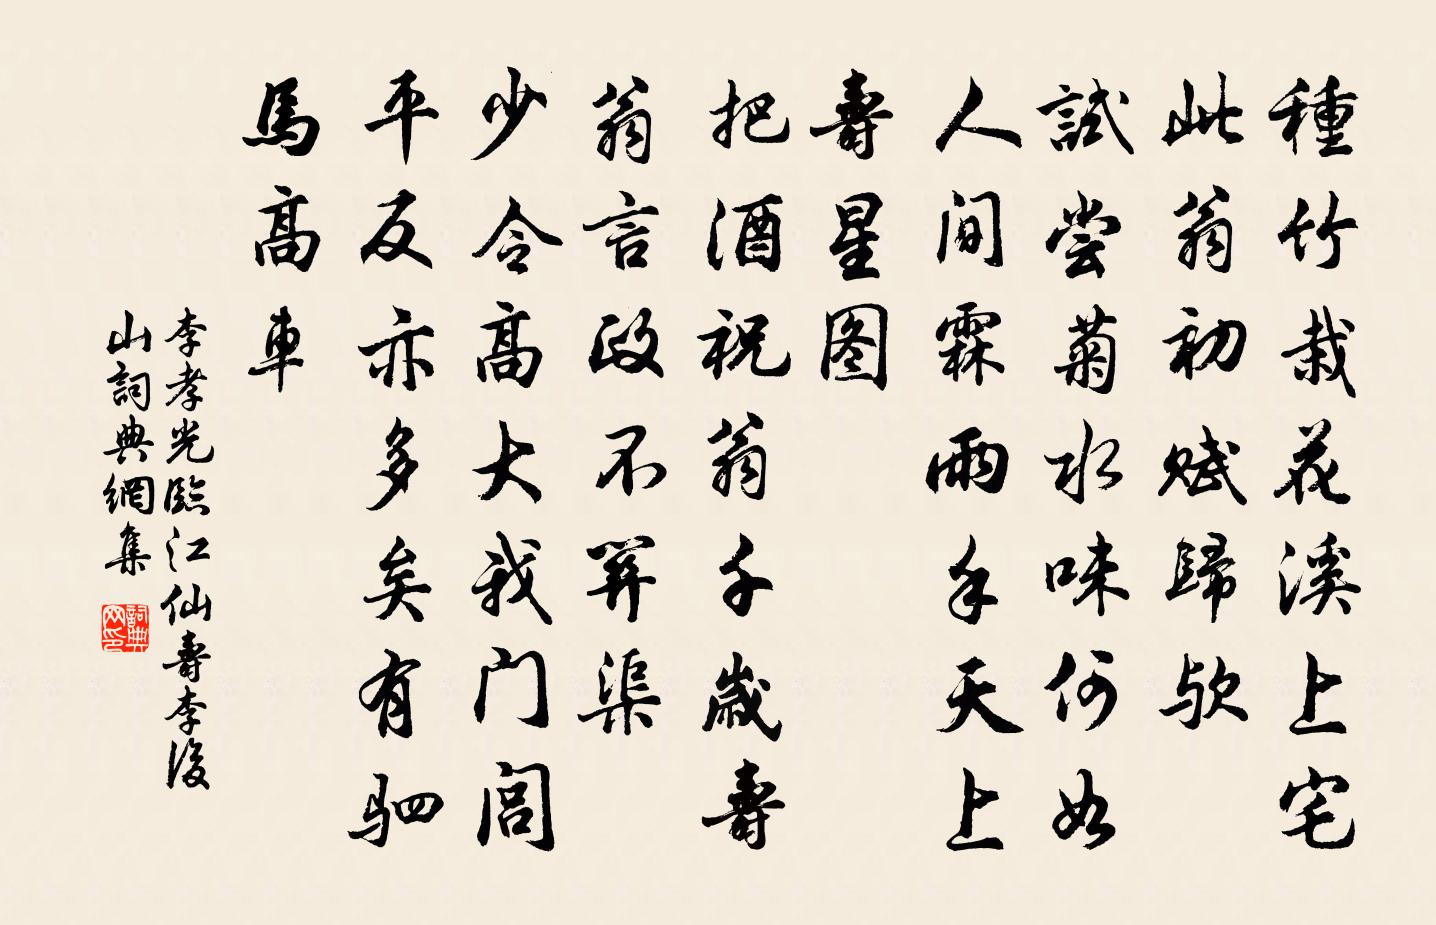 種竹栽花溪上宅
此翁初賦歸歟
試嘗菊水味何如
人間霖雨手天上
壽星图
把酒祝翁千歲壽
翁言政不算渠
少令高大我门闾
平反亦多矣有驷
馬高車
李孝光臨江仙壽李後
山詞典網集
詞典网印